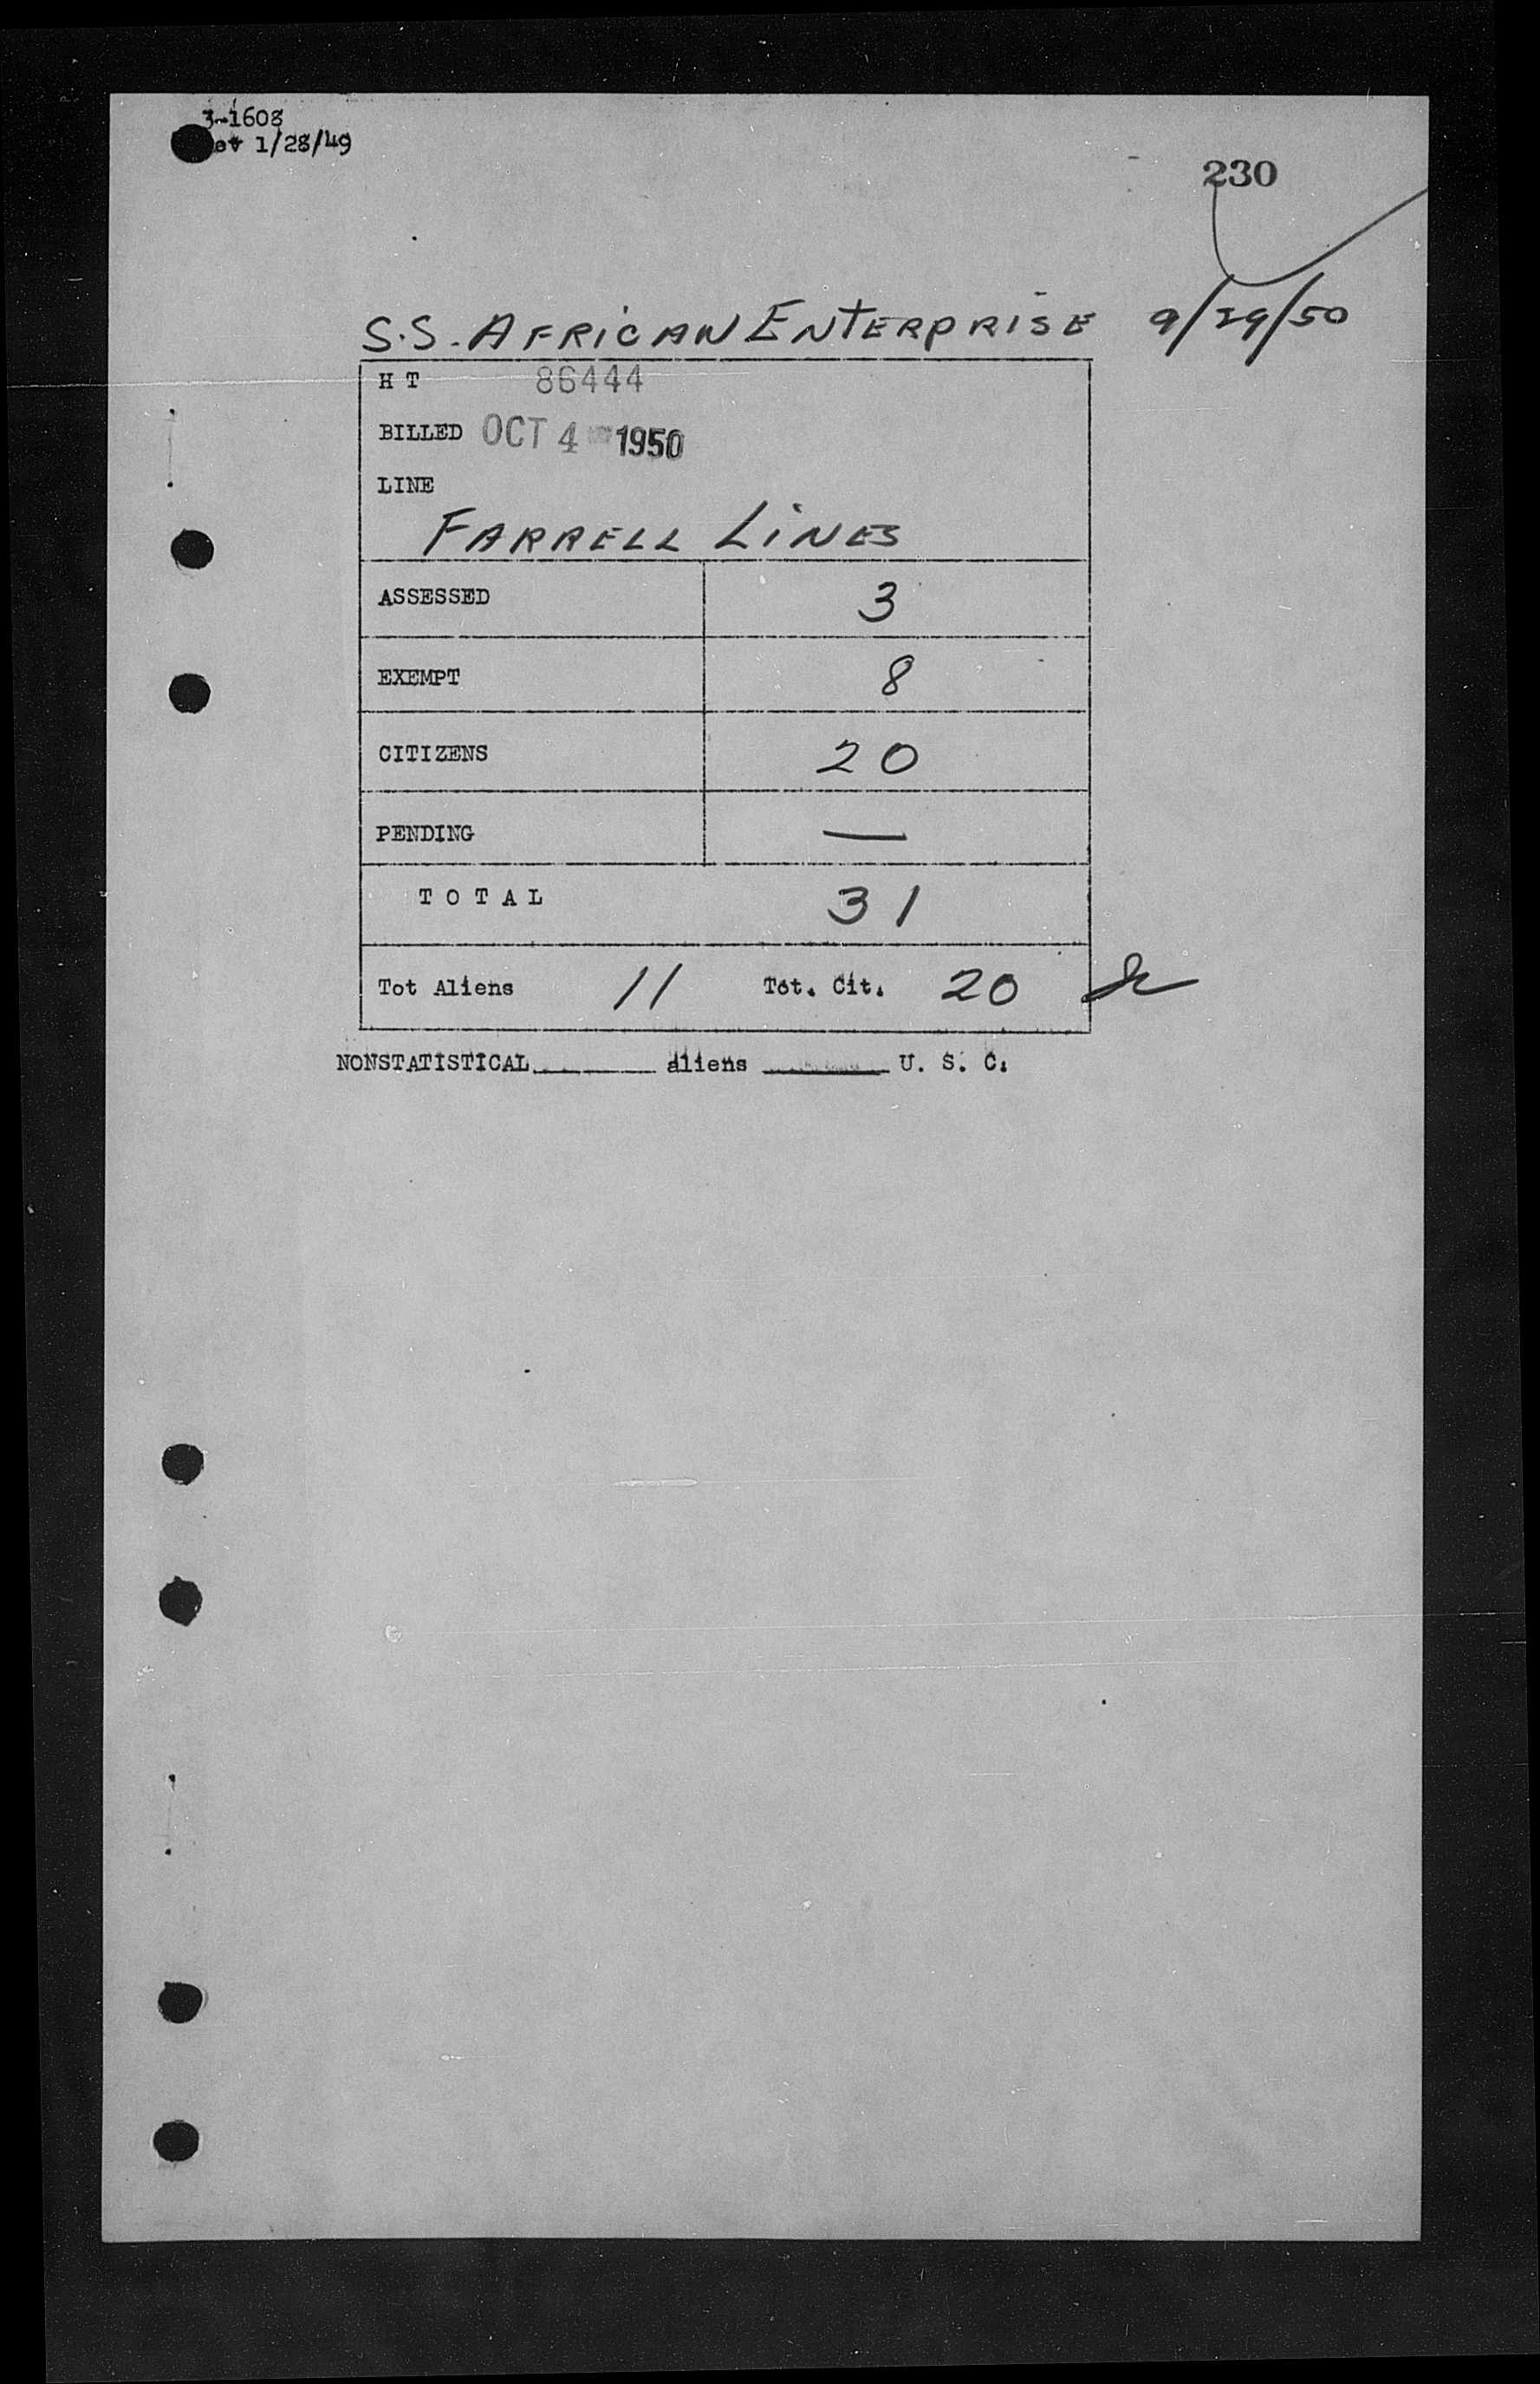 3-1608
Rev 1/28/49
230
S.S. AFRICAN ENTERPRISE 9/29/50
H T 86444
BILLED OCT 4 1950
LINE
FARRELL LINES
ASSESSED 3
EXEMPT 8
CITIZENS 20
PENDING —
T O T A L 31
Tot Aliens 11 Tot. Cit. 20
NONSTATISTICAL______ aliens ______ U. S. C.